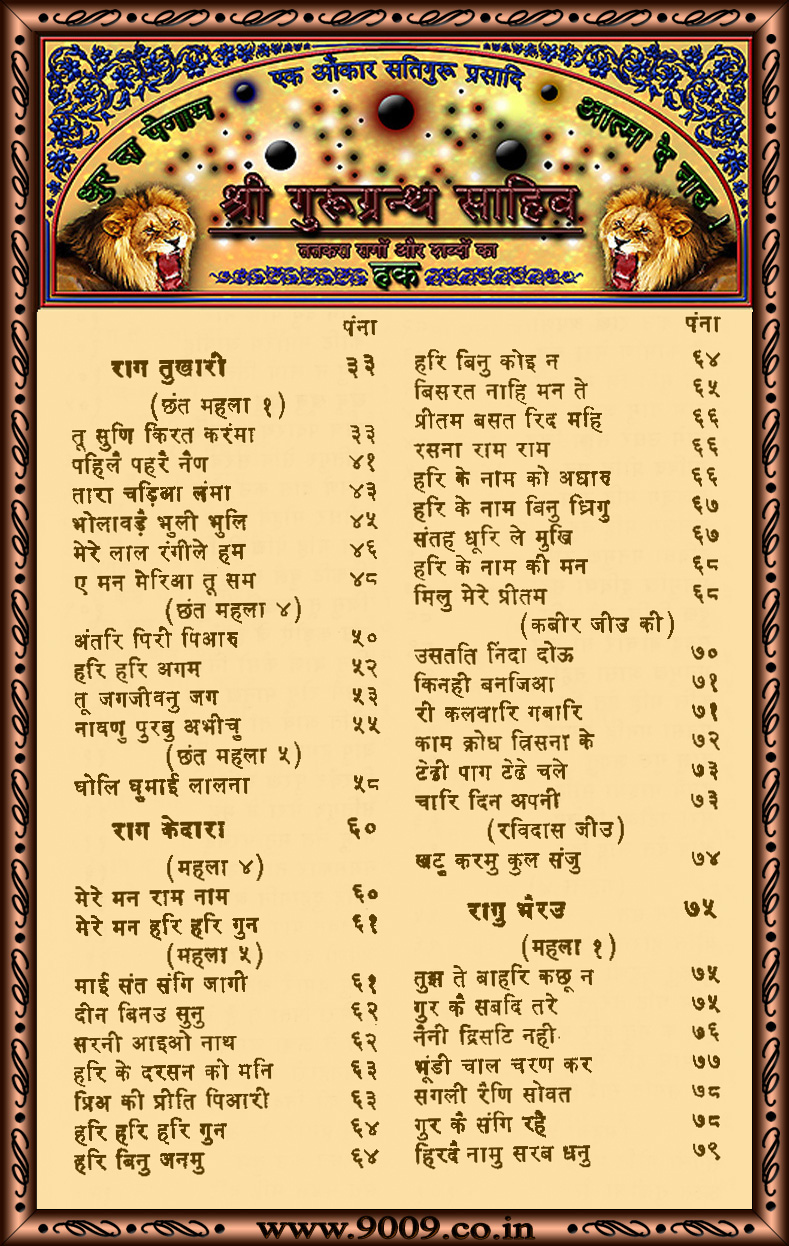 एक ओंकार सतिगुरू प्रसादि
धुर दा पैगाम
आत्मा दे नाउ !
श्री गुरूग्रन्थ साहिब
ततकरा रागों और शब्दों का
हक
पंना
राग तुखारी ३३
(छंत महला १)
तू सुणि किरत करंमा ३३
पहिलै पहरै नैण ४१
तारा चड़िआ लंमा ४३
भोलावड़ै भुली भुलि ४५
मेरे लाल रंगीले हम ४६
ए मन मेरिआ तू सम ४८
(छंत महला ४)
अंतरि पिरी पिआरु ५०
हरि हरि अगम ५२
तू जगजीवनु जग ५३
नावणु पुरबु अभीचु ५५
(छंत महला ५)
घोलि घुमाई लालना ५८
राग केदारा ६०
(महला ४)
मेरे मन राम नाम ६०
मेरे मन हरि हरि गुन ६१
(महला ५)
माई संत संगि जागी ६१
दीन बिनउ सुनु ६२
सरनी आइओ नाथ ६२
हरि के दरसन को मनि ६३
प्रिअ की प्रीति पिआरी ६३
हरि हरि हरि गुन ६४
हरि बिनु जनमु ६४
पंना
हरि बिनु कोइ न ६४
बिसरत नाहि मन ते ६५
प्रीतम बसत रिद महि ६६
रसना राम राम ६६
हरि के नाम को अधारु ६६
हरि के नाम बिनु ध्रिगु ६७
संतह धूरि ले मुखि ६७
हरि के नाम की मन ६८
मिलु मेरे प्रीतम ६८
(कबीर जीउ की)
उसतति निंदा दोऊ ७०
किनही बनजिआ ७१
री कलवारि गबारि ७१
काम क्रोध त्रिसना के ७२
टेढी पाग टेढे चले ७३
चारि दिन अपनी ७३
(रविदास जीउ)
खटु करमु कुल संजु ७४
रागु भैरउ ७५
(महला १)
तुझ ते बाहरि कछू न ७५
गुर कै सबदि तरे ७५
नैनी द्रिसटि नही ७६
भूंडी चाल चरण कर ७७
सगली रैणि सोवत ७८
गुर कै संगि रहै ७८
हिरदै नामु सरब धनु ७९
www.9009.co.in